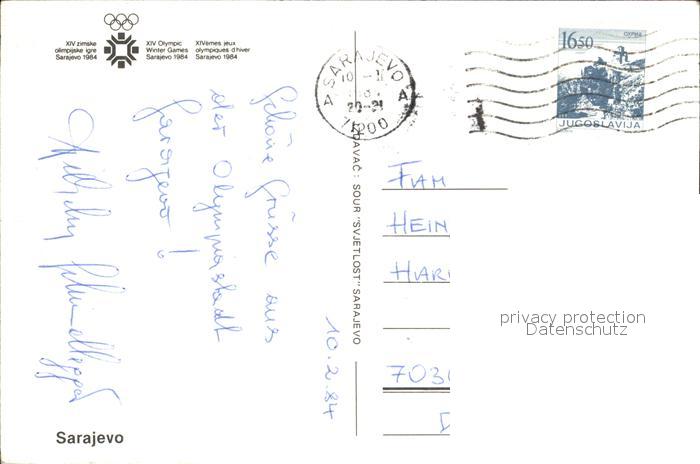 XIV zimske
olimpijske igre
Sarajevo 1984
XIV Olympic
Winter Games
Sarajevo 1984
XIVèmes jeux
olympiques d'hiver
Sarajevo 1984
A SARAJEVO A
10 -II
20-21
71200
16 50
JUGOSLAVIJA
Schöne Grüsse aus
der Olympiastadt
Sarajevo!
10.2.84
IZDAVAČ: SOUR "SVJETLOST" SARAJEVO
FAM
HEIN
HAR
703
D
privacy protection
Datenschutz
Sarajevo